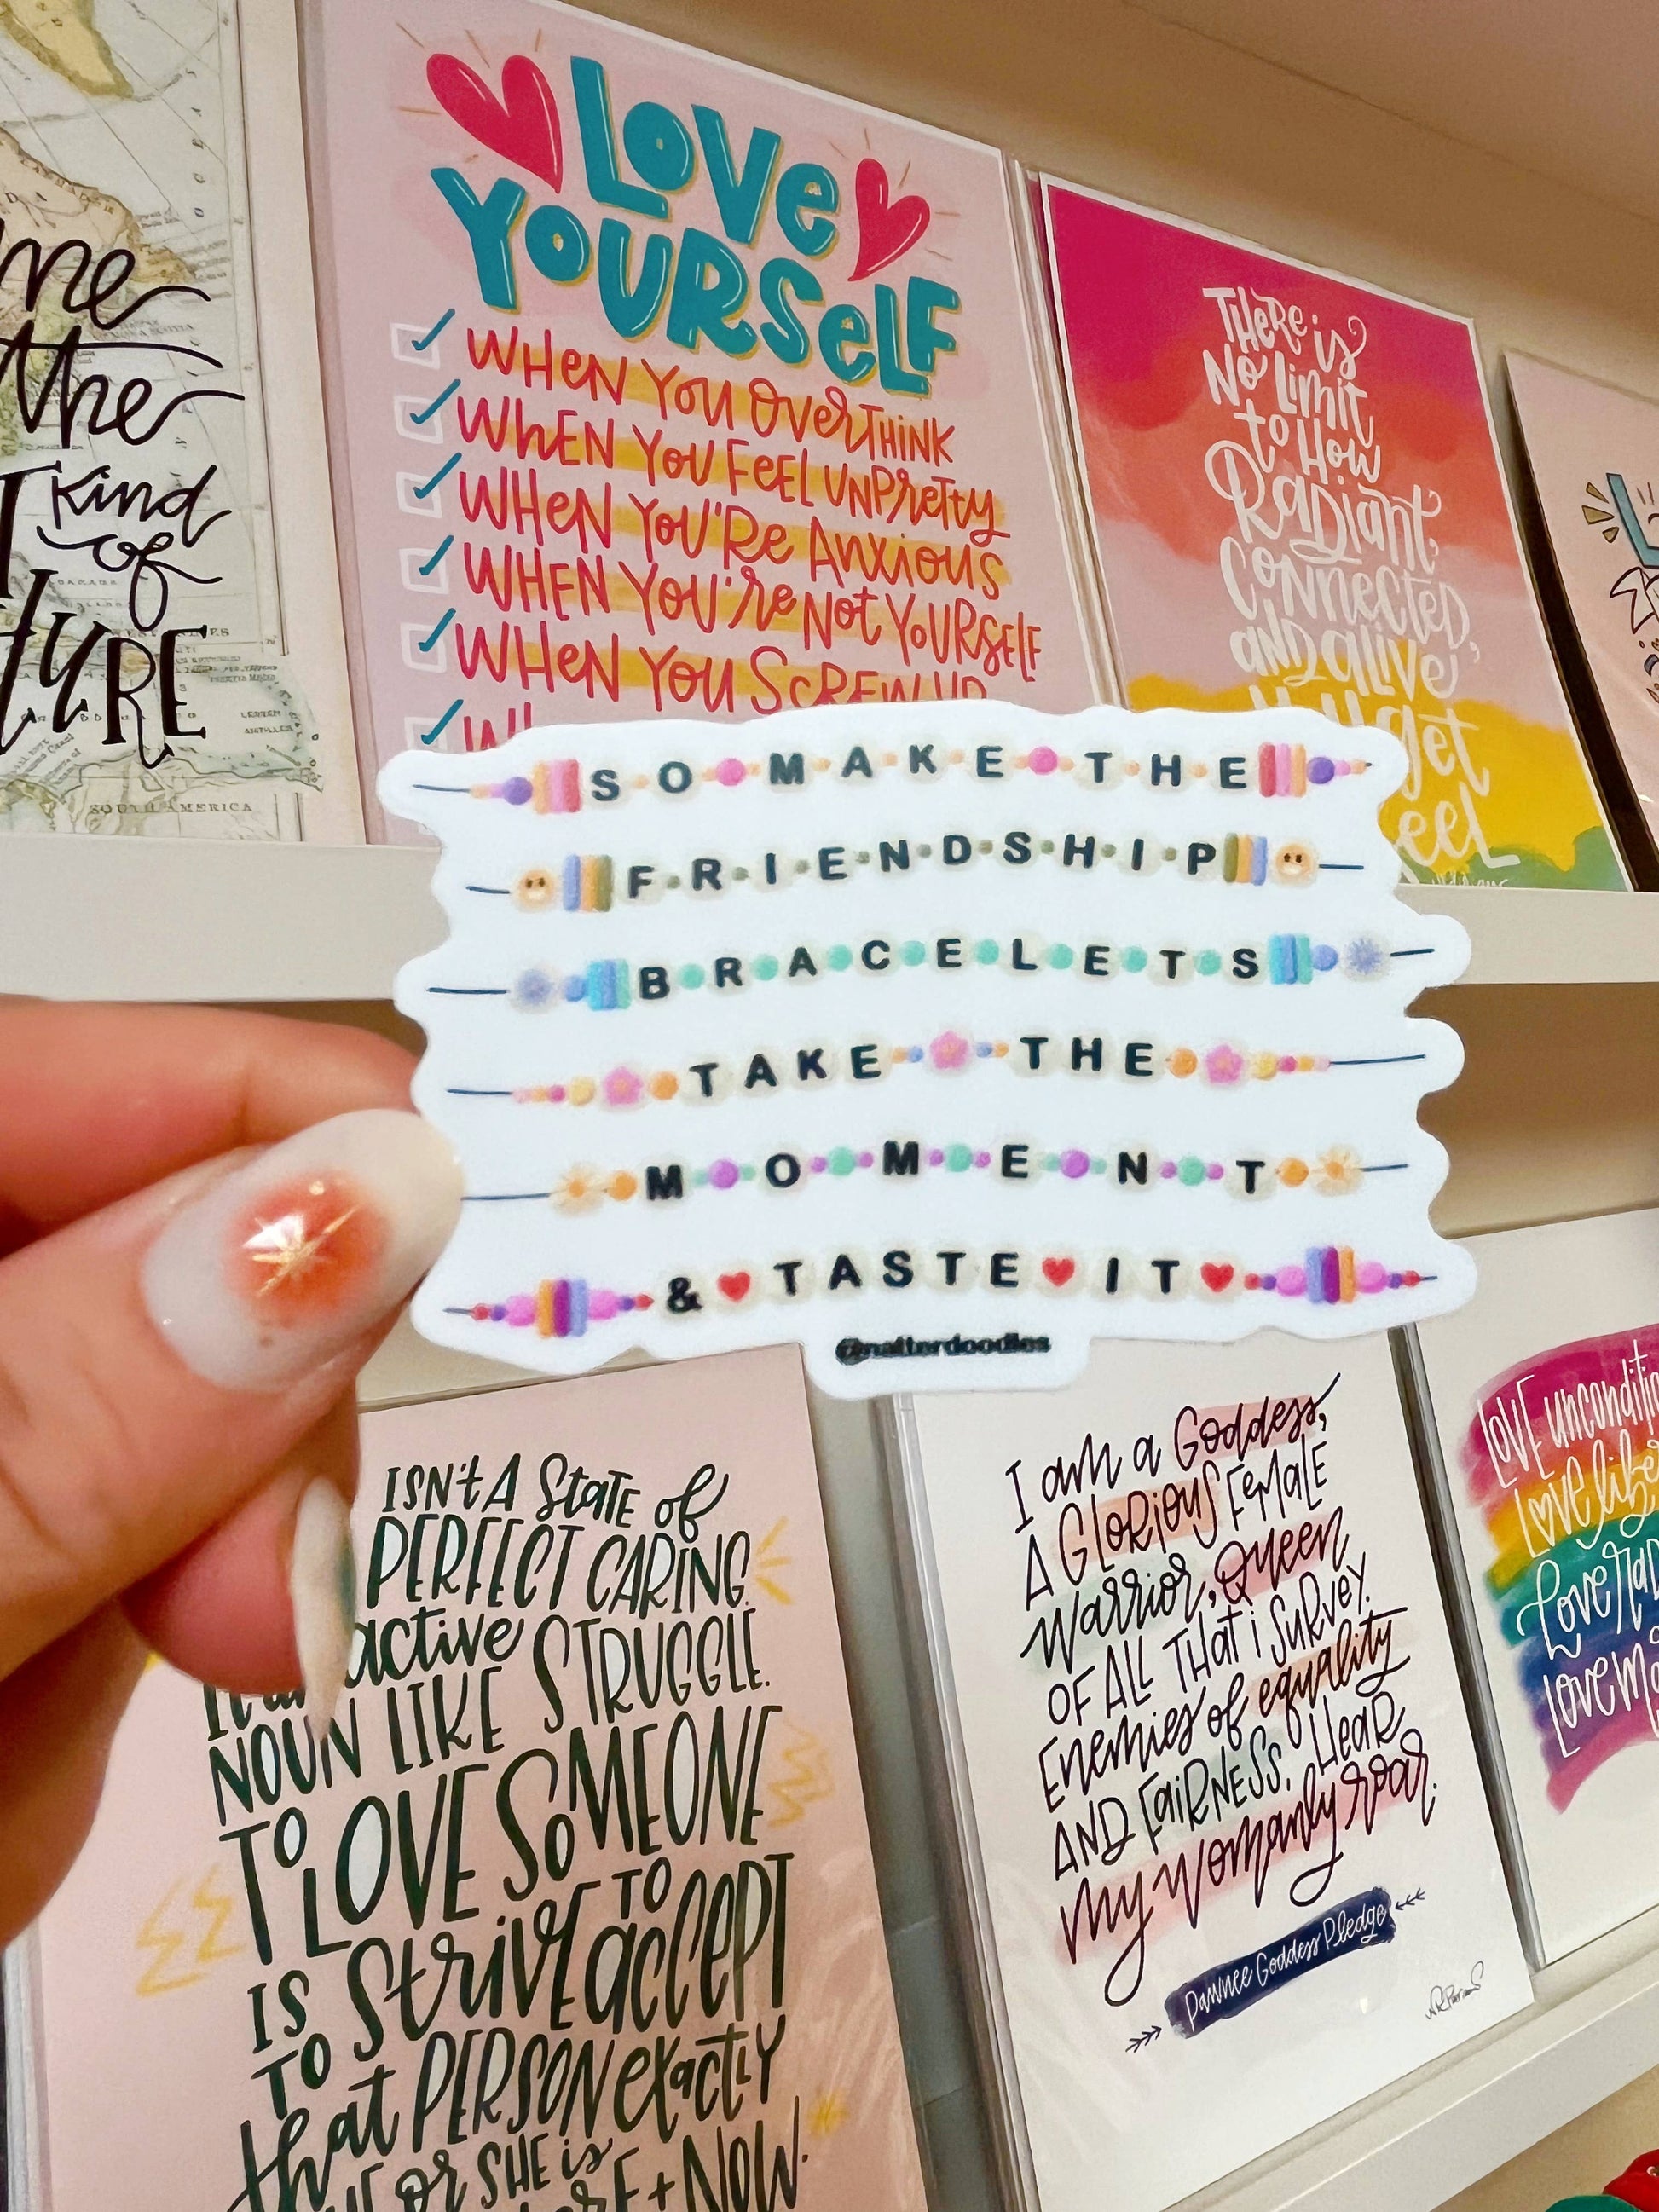 Kind
of
SOUTH AMERICA
LOVe
YOURSeLF
WHeN YOU OveRTHiNK
WhEN YOU FeEL UNPReTtY
WHeN YOU'Re ANXiOUS
WHEN YOU're NOt YOURSELF
WHeN YOU SCREW UP
THeRe iS
No Limit
to How
RaDiant,
CoNNeCteD,
aND aLiVe
get
SO MAKE THE
FRIENDSHIP
BRACELETS
TAKE THE
MOMENT
& TASTE IT
@natterdoodles
ISN't A StaTE of
PERFECT CARING.
active STRUGGLE.
NOUN LIKE
TO LOVE SOMEONE
IS TO
StRiVE accEPT
TO
that PERSON exactLY
OR SHE is
+ NOW.
I am a Goddess,
A GLORiOUS FeMaLE
Warrior, Queen
OF ALL THat i SURVeY.
Enemies of equality
AND FaiRNeSS, HeaR
my womanly roar.
Pawnee Goddess Pledge
LOVE
Love
Love
Love